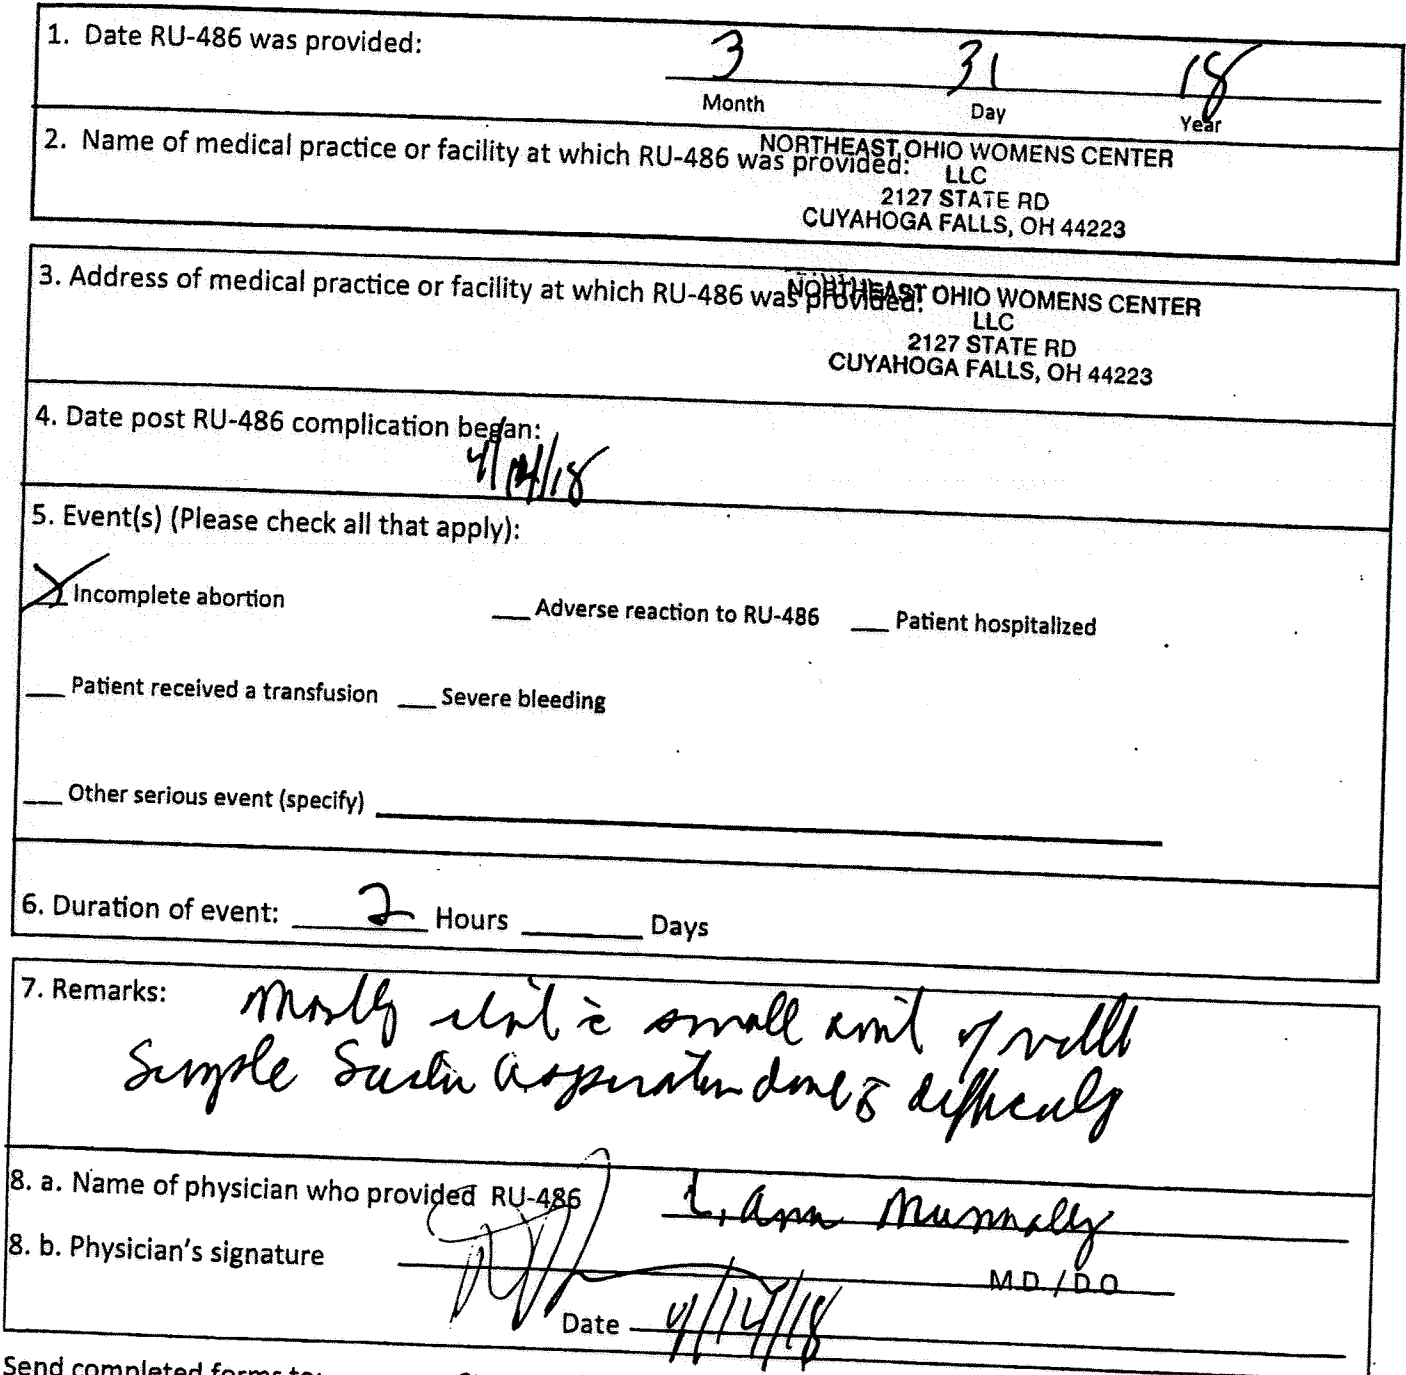 1. Date RU-486 was provided: 3 31 18
Month Day Year
2. Name of medical practice or facility at which RU-486 was provided:
NORTHEAST OHIO WOMENS CENTER
LLC
2127 STATE RD
CUYAHOGA FALLS, OH 44223
3. Address of medical practice or facility at which RU-486 was provided:
NORTHEAST OHIO WOMENS CENTER
LLC
2127 STATE RD
CUYAHOGA FALLS, OH 44223
4. Date post RU-486 complication began:
4/14/18
5. Event(s) (Please check all that apply):
Incomplete abortion __ Adverse reaction to RU-486 __ Patient hospitalized
__ Patient received a transfusion __ Severe bleeding
__ Other serious event (specify)
6. Duration of event: 2 Hours ____ Days
7. Remarks: Mostly clot c̄ small amt of villi
Simple Suction Aspiration done s̄ difficulty
8. a. Name of physician who provided RU-486 Ann
8. b. Physician's signature
M.D./D.O
Date 4/14/18
Send completed forms to: